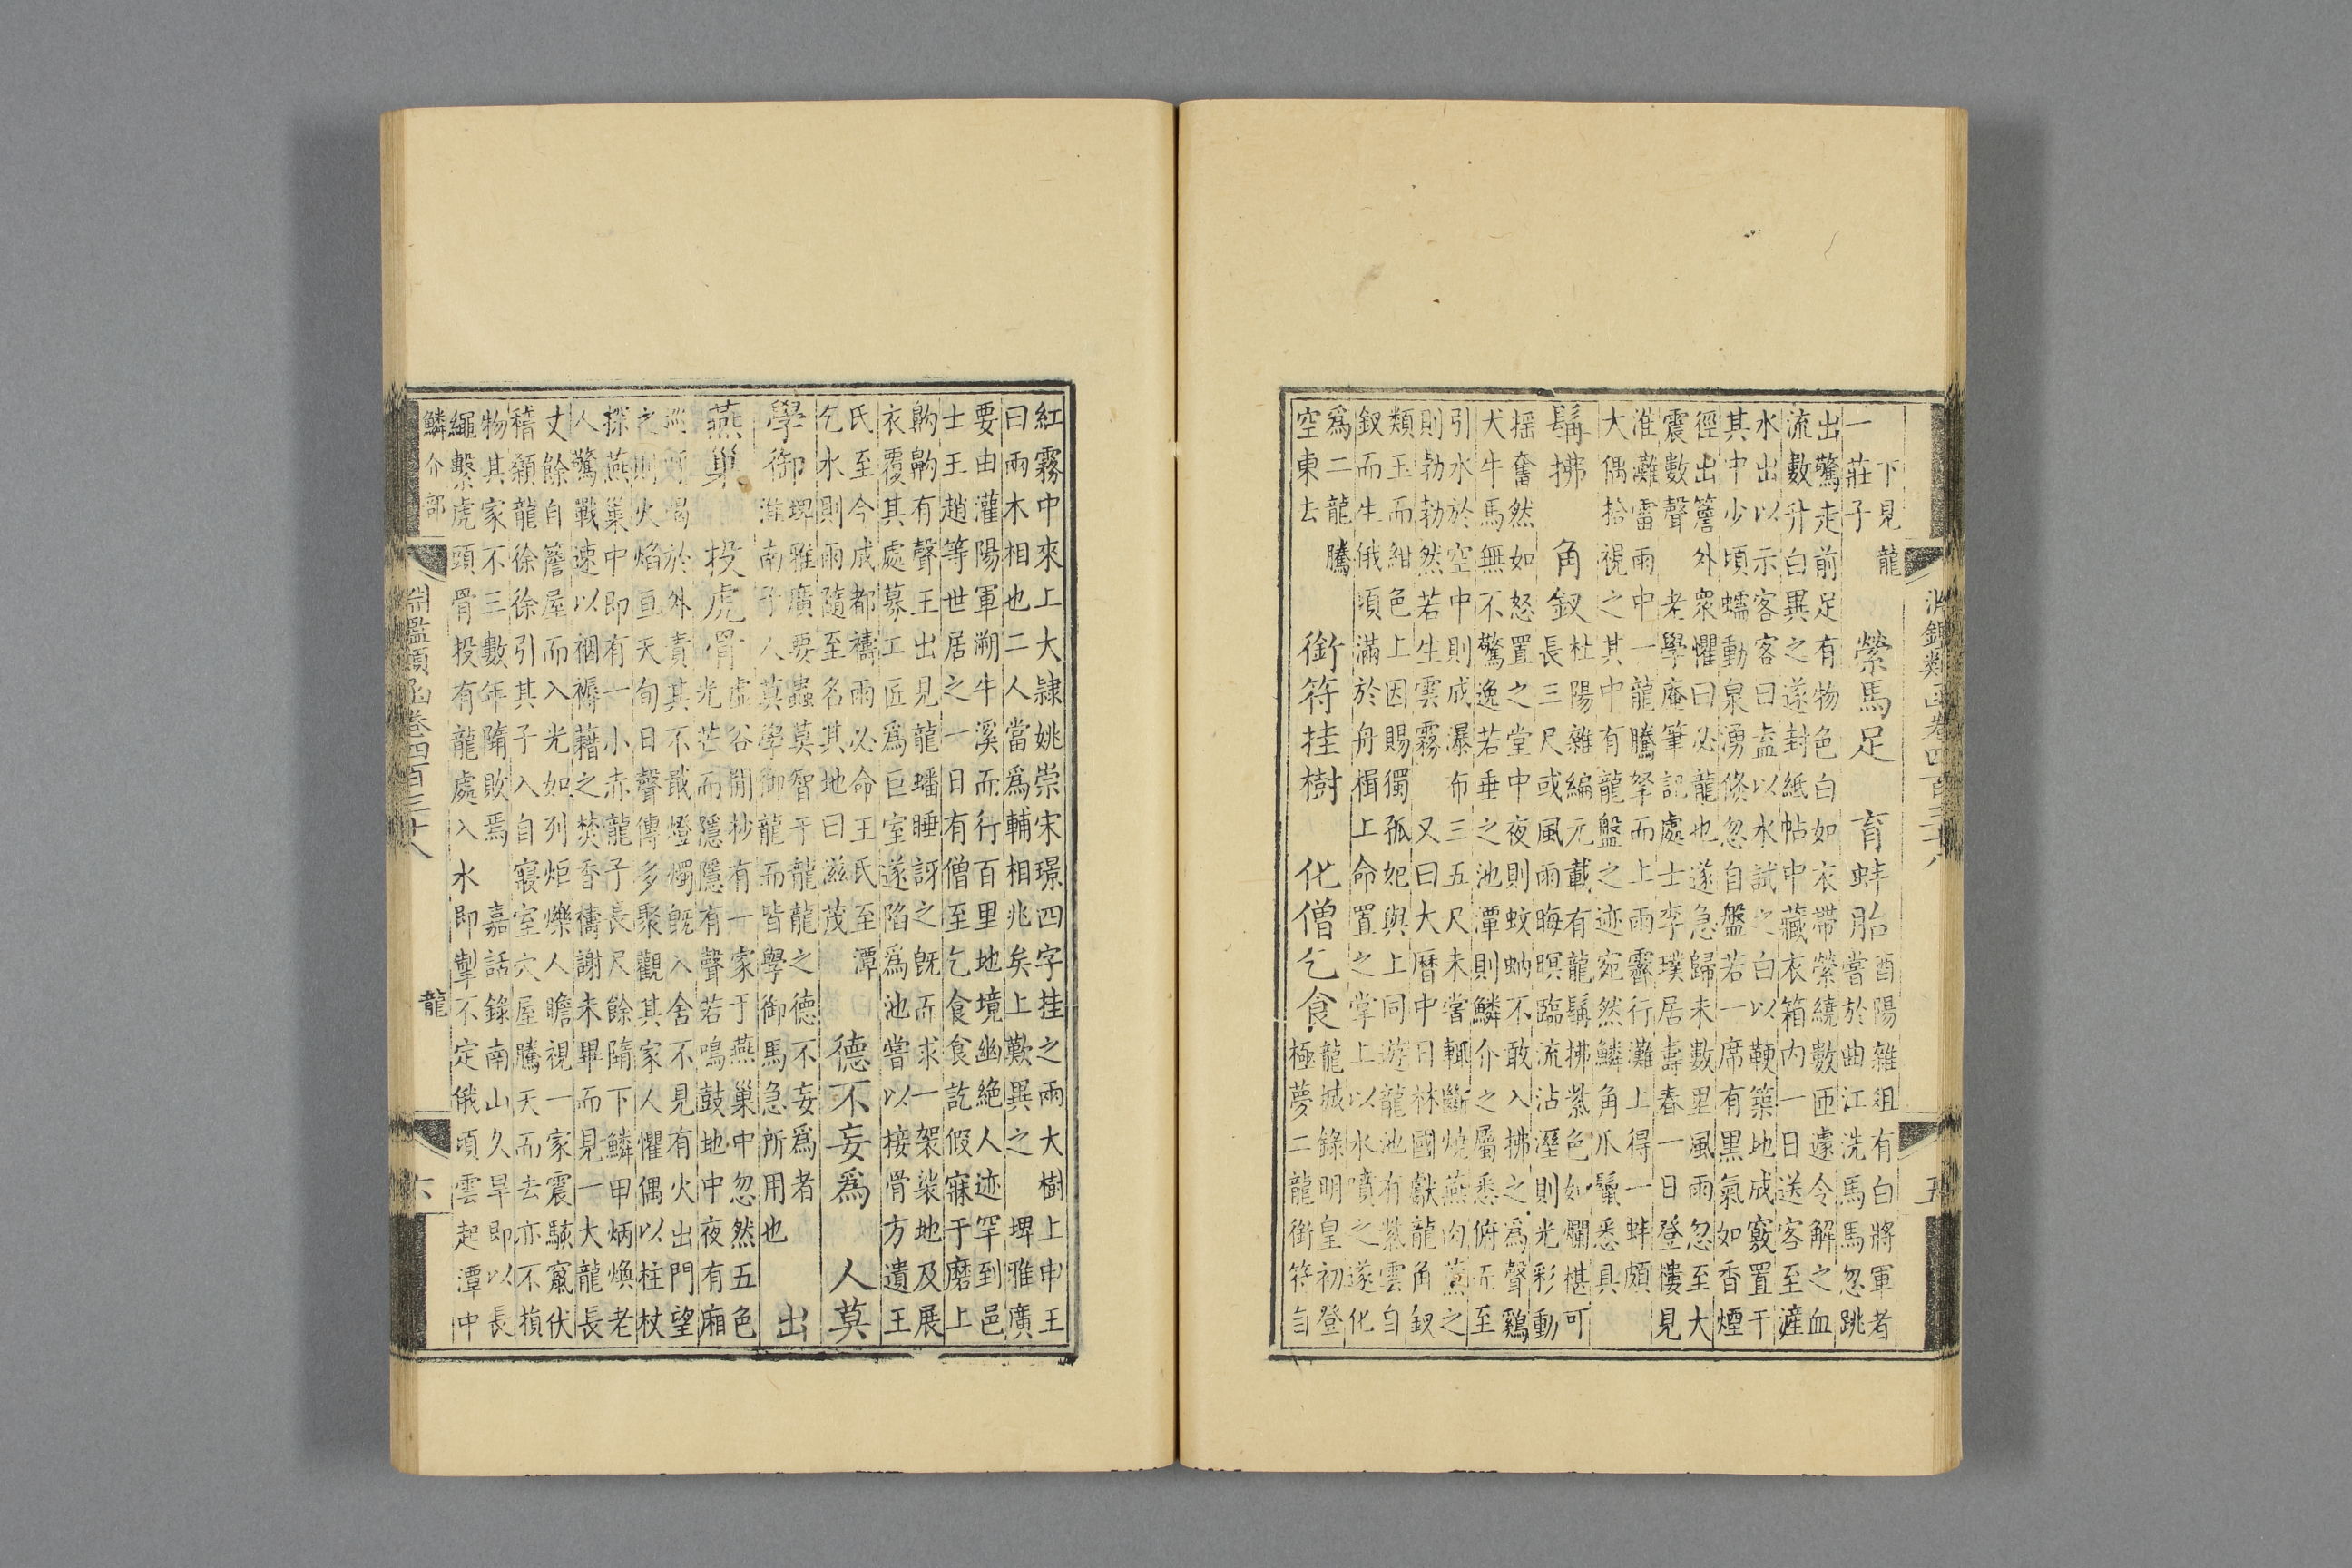 淵鑑類函卷四百三十八 五
下見龍
一莊子
縈馬足 育蚌胎
酉陽雜俎有白將軍者
嘗於曲江洗馬馬忽跳
出驚走前足有物色白如衣帶縈繞數匝遽令解之血
流數升白異之遂封紙帖中藏衣箱內一日送客至滻
水出以示客客曰盍以水試之白以鞕築地成竅置于
其中少頃蠕動泉湧倏忽自盤若一席有黑氣如香煙
徑出簷外眾懼曰必龍也遂急歸未數里風雨忽至大
震數聲 老學庵筆記處士李璞居壽春一日登樓見
淮灘雷雨中一龍騰拏而上雨霽行灘上得一蚌頗
大偶拾視之其中有龍盤之迹宛然鱗角爪鬣悉具
髯拂 角釵
杜陽雜編元載有龍髯拂紫色如爛椹可
長三尺或風雨晦暝臨流沾溼則光彩動
搖奮然如怒置之堂中夜則蚊蚋不敢入拂之爲聲鷄
犬牛馬無不驚逸若垂之池潭則鱗介之屬悉俯而至
引水於空中則成瀑布三五尺未嘗輒斷燒燕肉薰之
則勃勃然若生雲霧 又曰大曆中日林國獻龍角釵
類玉而紺色上因賜獨孤妃與上同遊龍池有紫雲自
釵而生俄頃滿於舟楫上命置之掌上以水噴之遂化
爲二龍騰
空東去
銜符挂樹 化僧乞食
龍城錄明皇初登
極夢二龍銜符自
紅霧中來上大隸姚崇宋璟四字挂之兩大樹上申王
曰兩木相也二人當爲輔相兆矣上歎異之 埤雅廣
要由灌陽軍溯牛溪而行百里地境幽絕人迹罕到邑
士王趙等世居之一日有僧至乞食食訖假寐于磨上
齁齁有聲王出見龍蟠睡訝之既而求一袈裟地及展
衣覆其處募工匠爲巨室遂陷爲池嘗以接骨方遺王
氏至今成都禱雨必命王氏至潭
乞水則雨隨至名其地曰滋茂
德不妄爲 人莫
學御
埤雅廣要蟲莫智于龍龍之德不妄爲者
淮南子人莫學御龍而皆學御馬急所用也
出
燕巢 投虎骨
虛谷閒抄有一家于燕巢中忽然五色
光芒而隱隱有聲若鳴鼓地中夜有廂
巡所竭於外責其不戢燈燭既入舍不見有火出門望
之則火焰亘天旬日聲傳多聚觀其家人懼偶以柱杖
探燕巢中即有一小赤龍子長尺餘隋下鱗甲炳煥老
人驚戰速以裀褥藉之焚香禱謝未畢而見一大龍長
丈餘自簷屋而入光如列炬爍人瞻視一家震駭竄伏
稽顙龍徐徐引其子入自寢室穴屋騰天而去亦不損
物其家不三數年隋敗焉 嘉話錄南山久旱即以長
繩繫虎頭骨投有龍處入水即掣不定俄頃雲起潭中
鱗介部 龍
淵鑑類函卷四百三十八 六